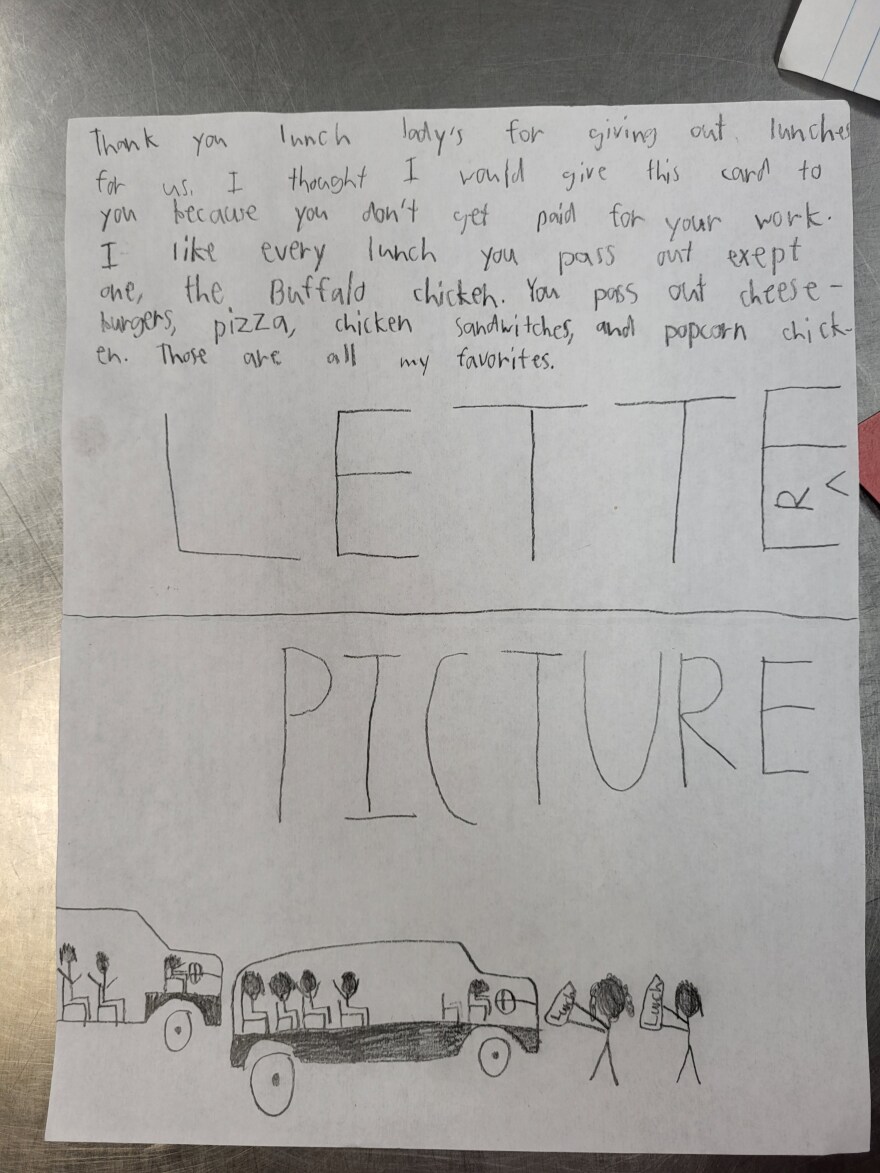 Thank you lunch lady's for giving out lunches
for us. I thought I would give this card to
you because you don't get paid for your work.
I like every lunch you pass out exept
one, the Buffalo chicken. You pass out cheese-
burgers, pizza, chicken sandwitches, and popcorn chick-
en. Those are all my favorites.
LETTE
R ^
PICTURE
Luch
Luch